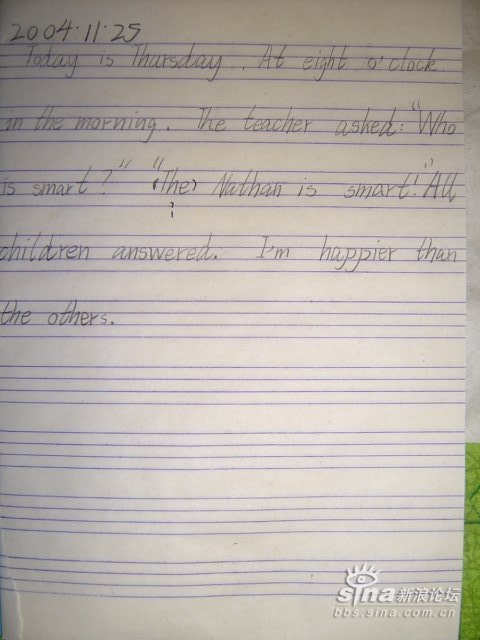 2004.11.25
Today is Thursday. At eight o'clock
in the morning. The teacher asked: "Who
is smart?" "(The) Nathan is smart!" All
?
children answered. I'm happier than
the others.
sina 新浪论坛
bbs.sina.com.cn